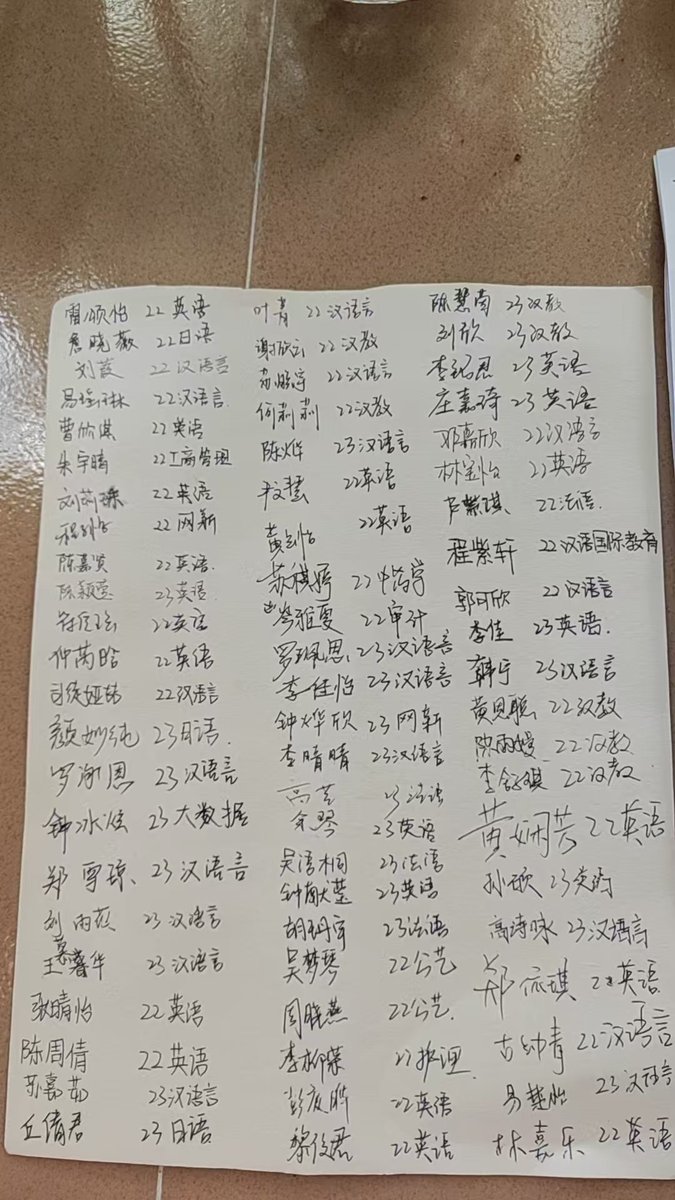 雷颂怡 22英语
詹晓薇 22日语
刘薇 22汉语言
冯 琳 22汉语言
曹欣淇 22英语
朱宇晴 22工商管理
刘莉 22英语
程 22网新
陈嘉 22英语
陈颖莹 23英语
符 22英语
仲芮晗 22英语
司徒娅喆 22汉语言
颜妙纯 23日语
罗谢恩 23汉语言
钟冰炫 23大数据
郑雪琼 23汉语言
刘雨薇 23汉语言
王慕馨华 23汉语言
张晴怡 22英语
陈周倩 22英语
苏嘉茹 23汉语言
丘倩君 23日语
叶青 22汉语言
谢欣 22汉教
苏 宇 22汉语言
何莉莉 22汉教
陈烨 23汉语言
尹文慧 22英语
黄 怡 22英语
苏祺婷 22
岑雅雯 22审计
罗珮恩 23汉语言
李佳怡 23汉语言
钟烨欣 23网新
李晴晴 23汉语言
高芝 23法语
余琴 23英语
吴语桐 23法语
钟 莹 23英语
胡玥宇 23法语
吴梦琴 22公艺
周晓燕 22公艺
李柳荣 22护理
彭 22英语
黎俊君 22英语
陈慧南 23汉教
刘欣 23汉教
李 恩 23英语
庄嘉琦 23英语
邓嘉欣 22汉语言
林宝怡 22英语
卢紫琪 22法语
程紫轩 22汉语国际教育
郭可欣 22汉语言
李佳 23英语
韩宁 23汉语言
黄思聪 22汉教
陈雨嫚 22汉教
李 琪 22汉教
黄娴芳 22英语
孙硕 23英
高诗咏 23汉语言
郑佩琪 22英语
古幼青 22汉语言
易楚怡 23汉语言
林嘉乐 22英语